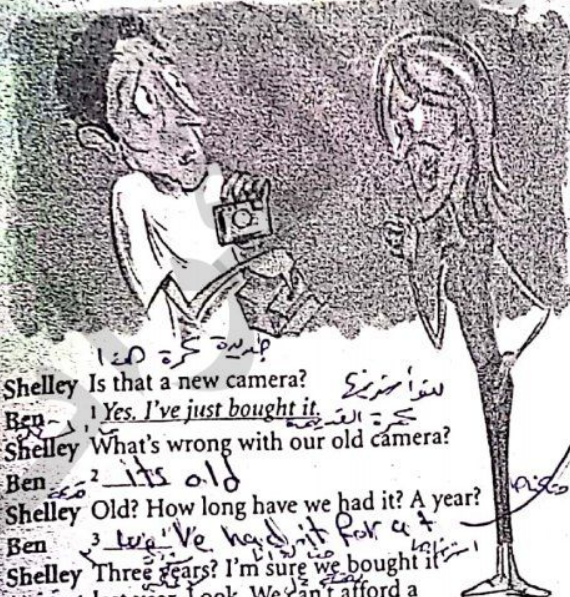 جديدة كمرة هذا
Shelley Is that a new camera?
Ben 1 Yes. I've just bought it.
Shelley What's wrong with our old camera?
Ben 2 its old
Shelley Old? How long have we had it? A year?
Ben 3 we've had it for at
Shelley Three years? I'm sure we bought it
last year. Look. We can't afford a